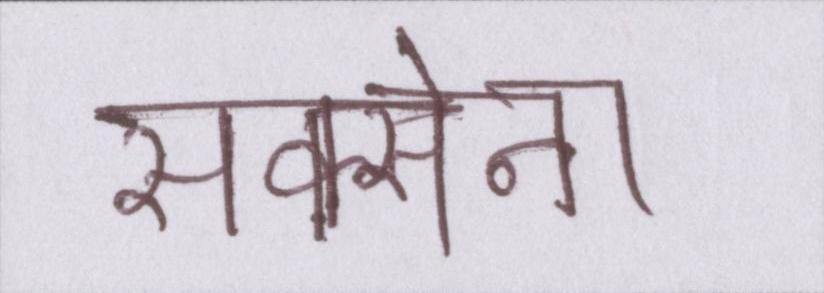 सक्सेना